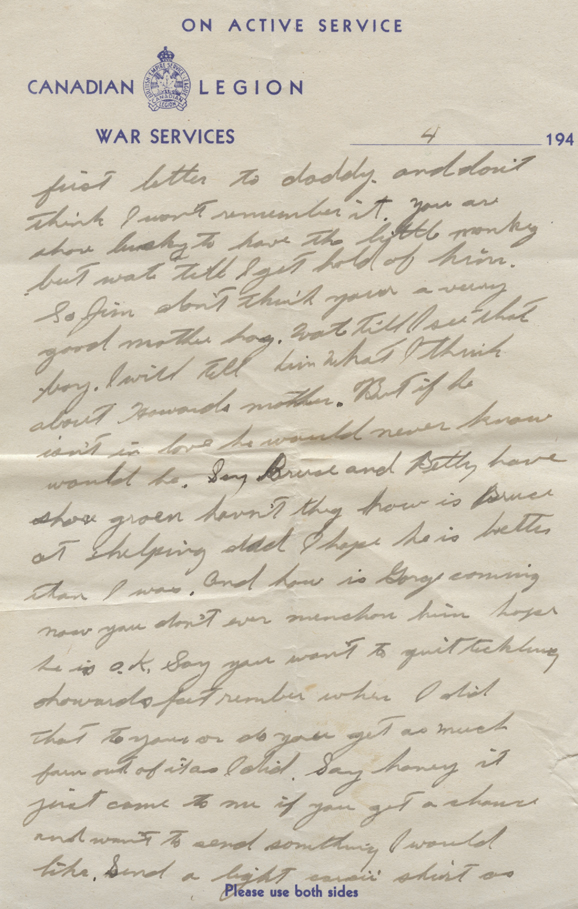 ON ACTIVE SERVICE
CANADIAN LEGION
WAR SERVICES 4 194
first letter to daddy. and don't
think I won't remember it. you are
shore lucky to have the little monkey
but wate till I get hold of him.
So Jim don't think your a very
good mother hay. Wate till I see that
boy. I will tell him What I think
about Howards mother. But if he
isn't in love he would never know
would he. Say Bruce and Betty have
shore groen havn't they how is Bruce
at shelping dad I hope he is bettes
than I was. And how is Gorge coming
now you don't ever menchon him hope
he is O.K. Say you want to quit tickling
showards feet rember when I did
that to you or do you get as much
faun out of it as I did. Say honey it
just came to me if you get a chance
and want to send something I would
like. Send a light skirt as
Please use both sides